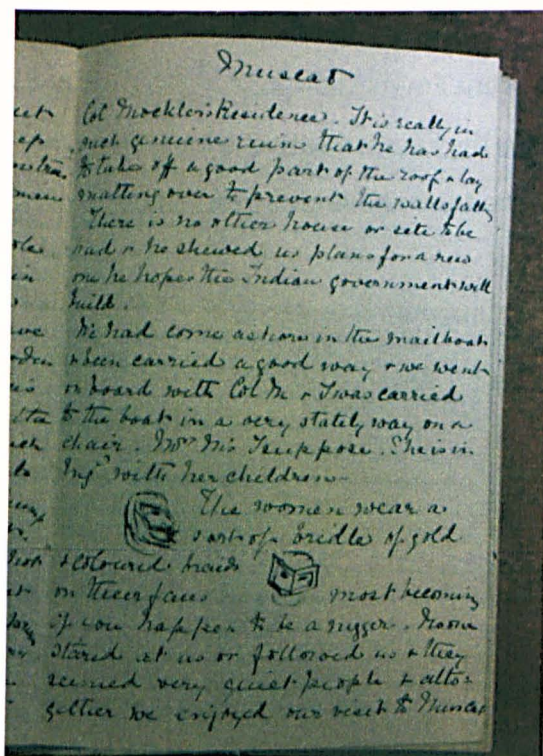 Muscat
Col Mockler's Residence. It is really in
such genuine ruin that he has had
to take off a good part of the roof & lay
matting over to prevent the walls fallg
There is no other house or site to be
had & he shewed us plans for a new
one he hopes the Indian government will
build.
We had come ashore in the mailboat
& been carried a good way & we went
on board with Col M & I was carried
to the boat in a very stately way on a
chair. Mrs M's I suppose. She is in
Engd with her children
The women wear a
sort of bridle of gold
& coloured braid
on their faces most becoming
if you happen to be a nigger. No one
stared at us or followed us & they
seemed very quiet people & alto-
gether we enjoyed our visit to Muscat